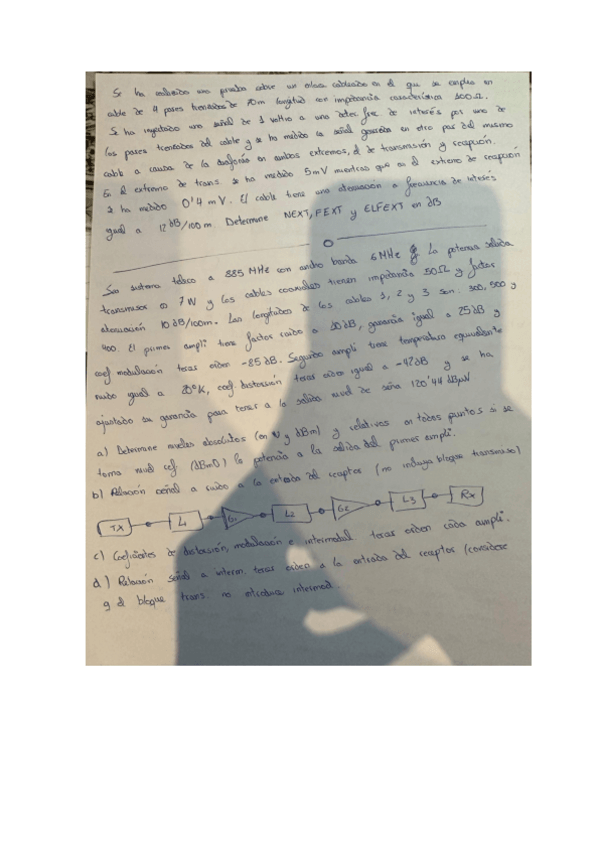 Se ha realizado una prueba sobre un enlace cableado en el que se emplea un
cable de 4 pares trenzados de 70m longitud con impedancia característica 100Ω.
Se ha inyectado una señal de 1 voltio a una deter. frec. de interés por uno de
los pares trenzados del cable y se ha medido la señal generada en otro par del mismo
cable a causa de la diafonía en ambos extremos, el de transmisión y recepción.
En el extremo de trans. se ha medido 5mV mientras que en el extremo de recepción
se ha medido 0'4 mV. El cable tiene una atenuación a frecuencia de interés
igual a 12dB/100m. Determine NEXT, FEXT y ELFEXT en dB
Sea sistema teleco a 885 MHz con ancho banda 6MHz. La potencia salida
transmisor es 7W y los cables coaxiales tienen impedancia 50Ω y factor
atenuación 10dB/100m. Las longitudes de los cables 1, 2 y 3 son: 300, 500 y
400. El primer ampli tiene factor ruido a 10dB, ganancia igual a 25dB y
coef modulación tercer orden -85dB. Segundo ampli tiene temperatura equivalente
ruido igual a °K, coef. distorsión tercer orden igual a -42dB y se ha
ajustado su ganancia para tener a la salida nivel de señal 120'44 dBμV
a) Determine niveles absolutos (en W y dBm) y relativos en todos puntos si se
toma nivel ref. (dBm0) la potencia a la salida del primer ampli.
b) Relación señal a ruido a la entrada del receptor (no incluya bloque transmisor)
TX L1 G1 L2 G2 L3 Rx
c) Coeficientes de distorsión, modulación e intermodul tercer orden cada ampli.
d) Relación señal a interm. tercer orden a la entrada del receptor (considere
q el bloque trans. no introduce intermod.